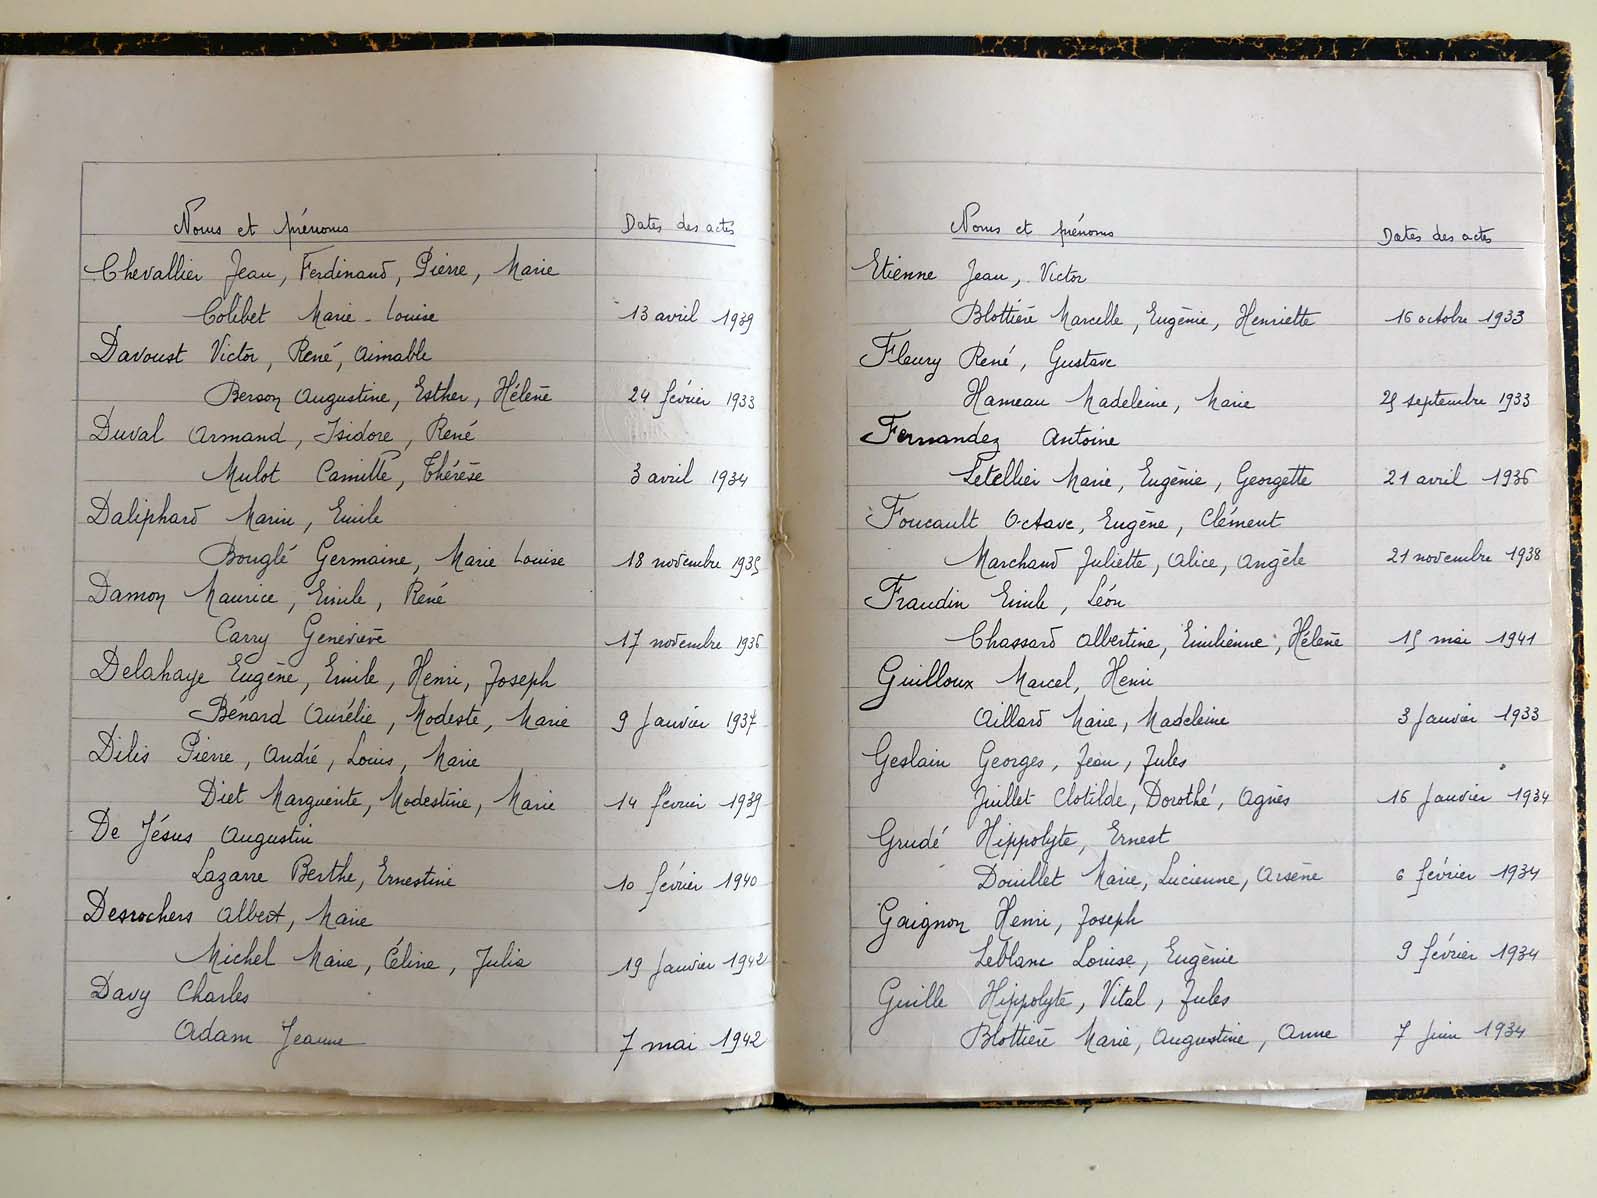 Noms et prénoms Dates des actes
Chevallier Jean, Ferdinand, Pierre, Marie
Colibet Marie-Louise 13 avril 1939
Davoust Victor, René, Aimable
Berson Augustine, Esther, Hélène 24 février 1933
Duval Armand, Isidore, René
Mulot Camille, Thérèse 3 avril 1934
Daliphard Marin, Emile
Bouglé Germaine, Marie Louise 18 novembre 1935
Damon Maurice, Emile, René
Carry Geneviève 17 novembre 1936
Delahaye Eugène, Emile, Henri, Joseph
Bénard Aurélie, Modeste, Marie 9 Janvier 1937
Dilis Pierre, André, Louis, Marie
Diet Marguerite, Modestine, Marie 14 février 1939
De Jésus Augustin
Lazarre Berthe, Ernestine 10 février 1940
Desrochers Albert, Marie
Michel Marie, Céline, Julia 19 Janvier 1942
Davy Charles
Adam Jeanne 7 mai 1942
Noms et prénoms Dates des actes
Etienne Jean, Victor
Blottière Marcelle, Eugènie, Henriette 16 octobre 1933
Fleury René, Gustave
Hameau Madeleine, Marie 25 septembre 1933
Fernandez Antoine
Letellier Marie, Eugènie, Georgette 21 avril 1936
Foucault Octave, Eugène, Clément
Marchand Juliette, Alice, Angèle 21 novembre 1938
Fraudin Emile, Léon
Chassard Albertine, Emilienne, Hélène 15 mai 1941
Guilloux Marcel, Henri
Aillard Marie, Madeleine 3 Janvier 1933
Geslain Georges, Jean, Jules
Juillet Clotilde, Dorothé, Agnès 16 Janvier 1934
Grudé Hippolyte, Ernest
Douillet Marie, Lucienne, Arsène 6 février 1934
Gaignon Henri, Joseph
Leblanc Louise, Eugènie 9 février 1934
Guille Hippolyte, Vital, Jules
Blottière Marie, Augustine, Anne 7 Juin 1934